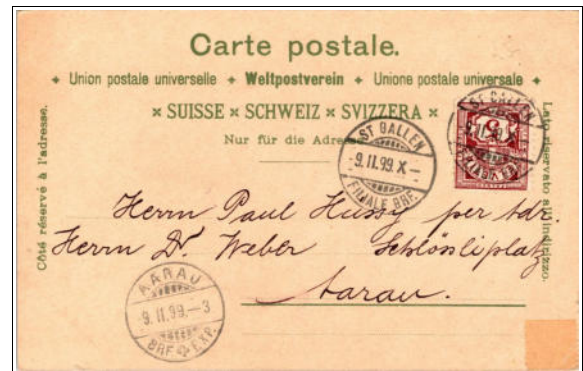 Carte postale.
Union postale universelle + Weltpostverein + Unione postale universale
× SUISSE × SCHWEIZ × SVIZZERA ×
Nur für die Adresse
Côté réservé à l'adresse.
Lato riservato all'indirizzo.
ST GALLEN
-9.II.99.X-
FILIALE BRF.
ST GALLEN
Herrn Paul Hussy per Adr.
Herrn Dr. Weber Schlössliplatz
Aarau.
AARAU
-9.II.99.-3
BRF. EXP.